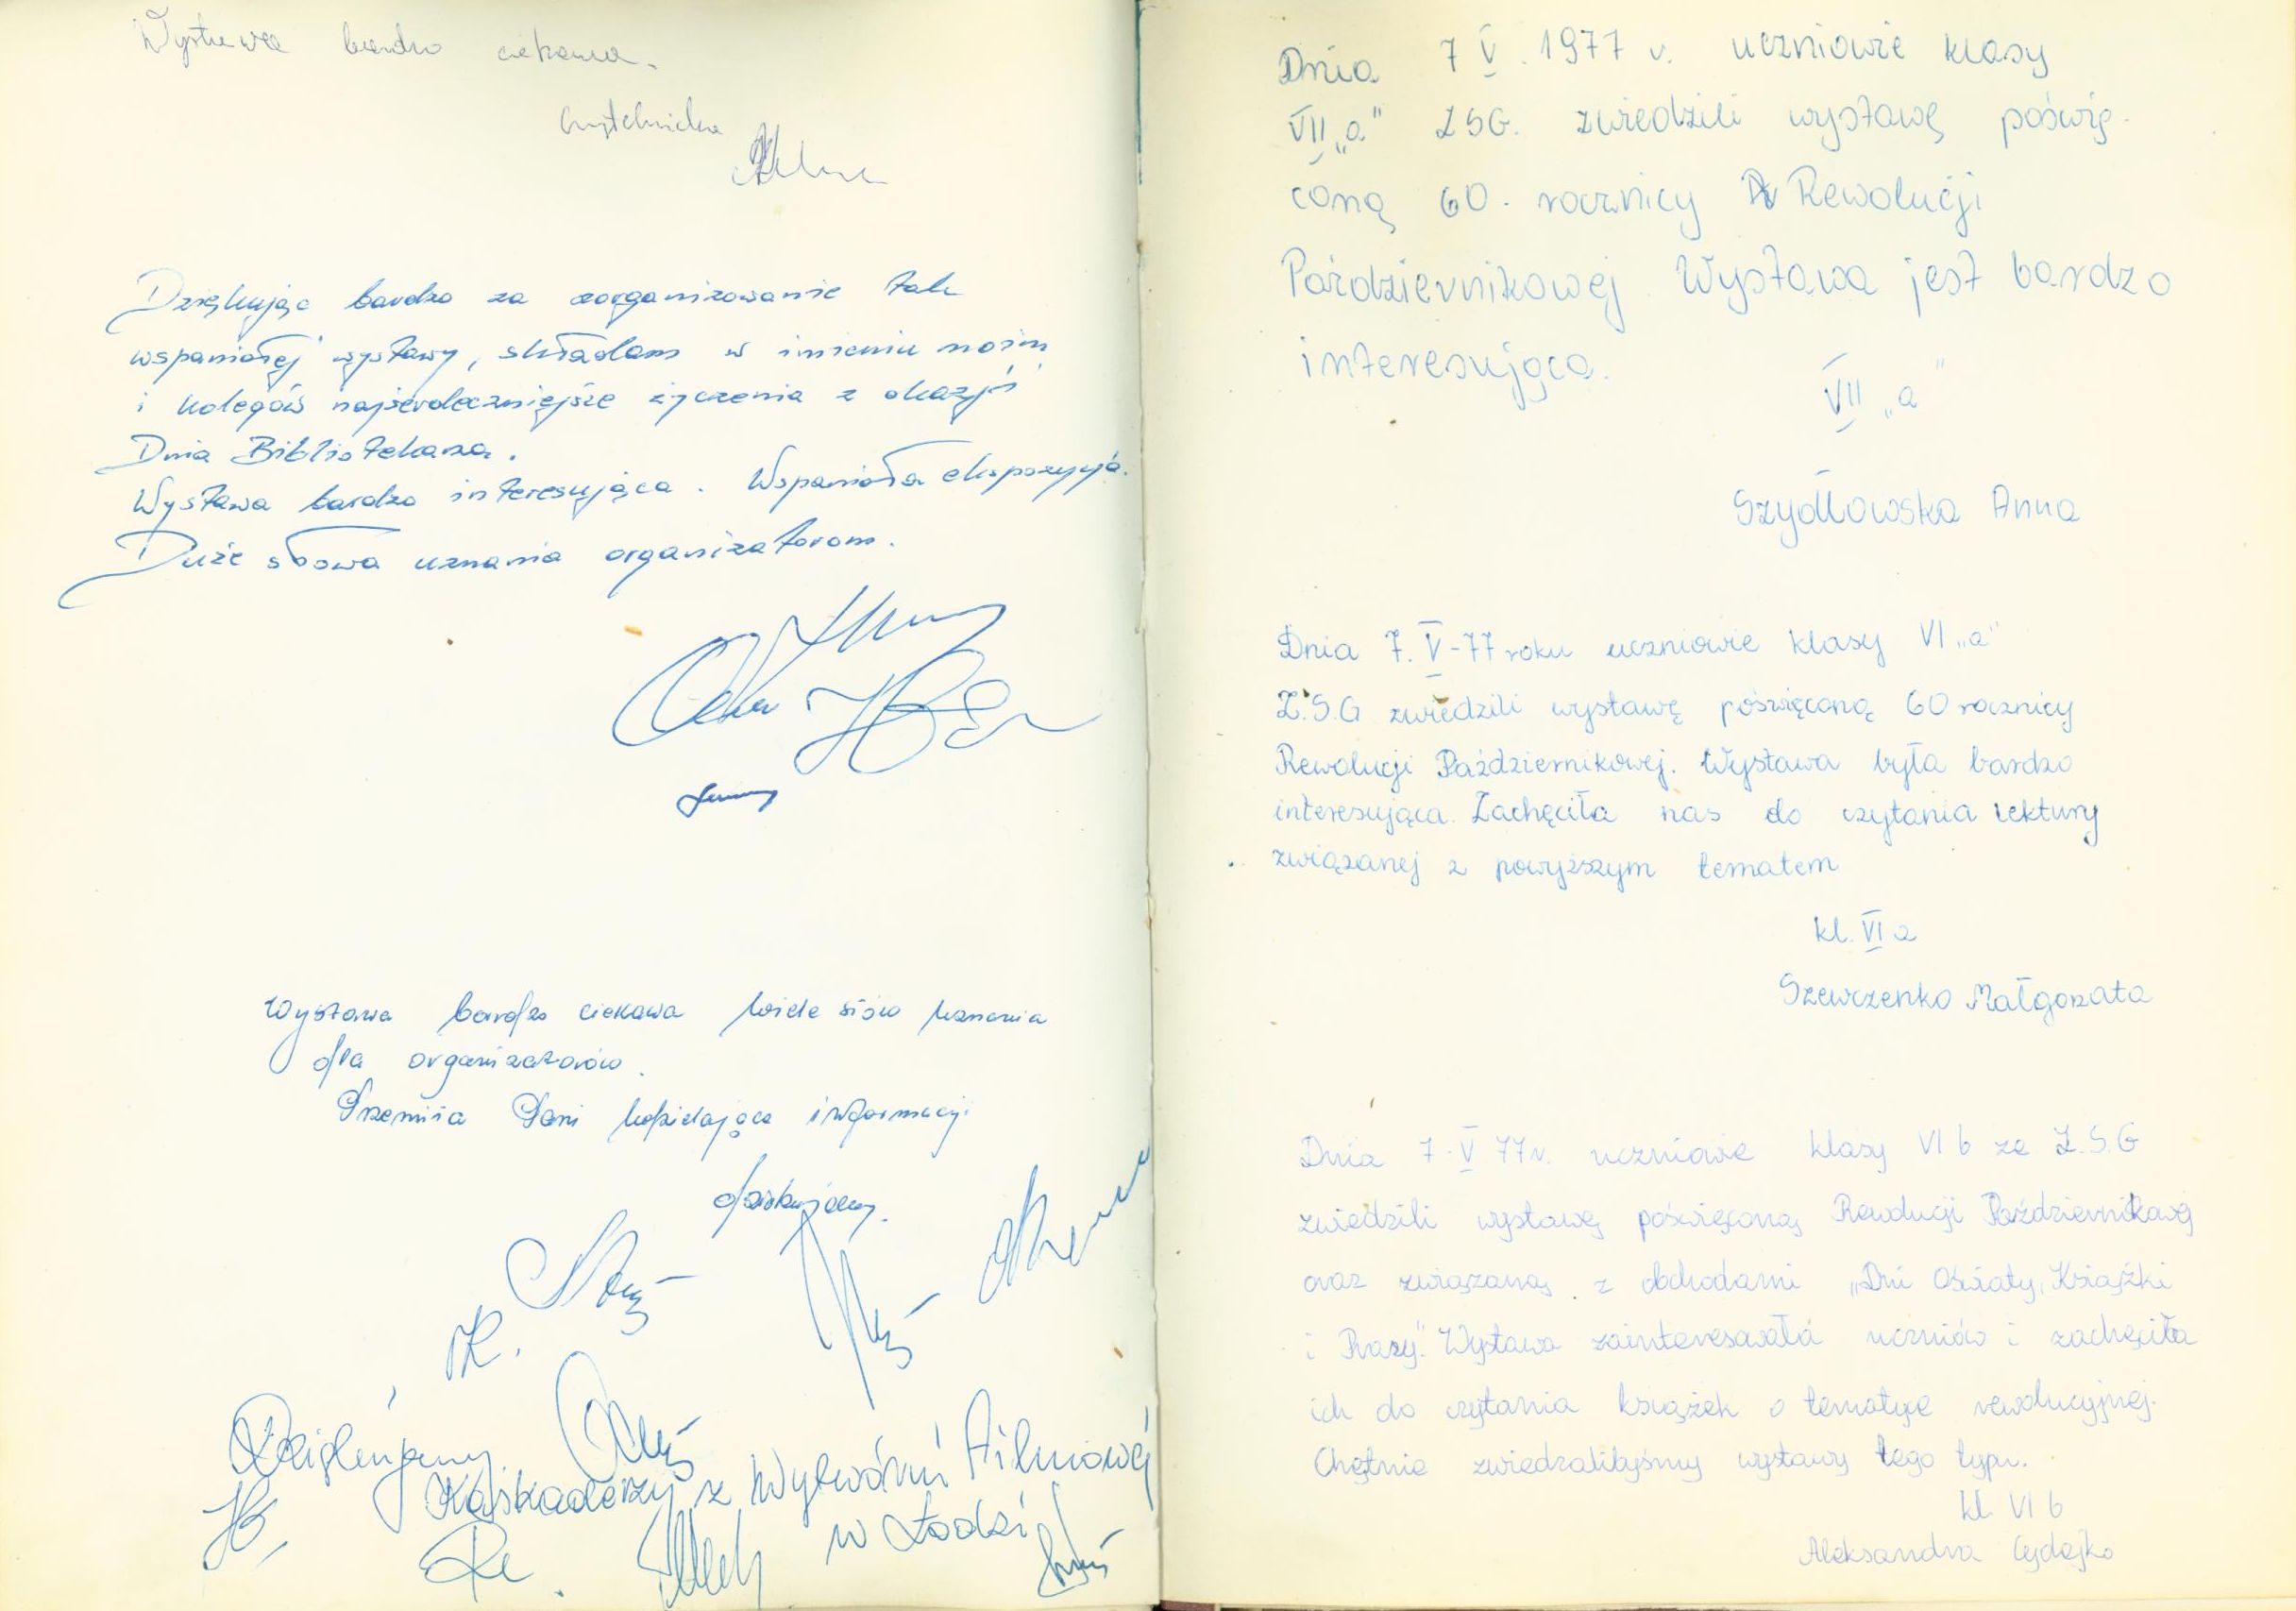 Wystawa bardzo ciekawa.
Czytelniczka
Dziękując bardzo za zorganizowanie tak
wspaniałej wystawy, składam w imieniu moim
i kolegów najserdeczniejsze życzenia z okazji
Dnia Bibliotekarza.
Wystawa bardzo interesująca. Wspaniała ekspozycja.
Duże słowa uznania organizatorom.
Wystawa bardzo ciekawa wiele słów uznania
dla organizatorów.
Przemiła Pani udzielająca informacji
dziękujemy.
Dziękujemy
Kaskaderzy z Wytwórni Filmowej
w Łodzi
Dnia 7 V. 1977 r. uczniowie klasy
VII „a" ZSG. zwiedzili wystawę poświę-
coną 60. rocznicy Rewolucji
Październikowej Wystawa jest bardzo
interesująca.
VII „a"
Szydłowska Anna
Dnia 7. V-77 roku uczniowie klasy VI „a"
Z.S.G zwiedzili wystawę poświęconą 60 rocznicy
Rewolucji Październikowej. Wystawa była bardzo
interesująca. Zachęciła nas do czytania lektury
związanej z powyższym tematem
kl. VI a
Szewczenko Małgorzata
Dnia 7. V 77 r. uczniowie klasy VI b ze Z.S.G
zwiedzili wystawę poświęconą Rewolucji Październikowej
oraz związaną z obchodami „Dni Oświaty, Książki
i Prasy." Wystawa zainteresowała uczniów i zachęciła
ich do czytania książek o tematyce rewolucyjnej.
Chętnie zwiedzalibyśmy wystawy tego typu.
kl. VI b
Aleksandra